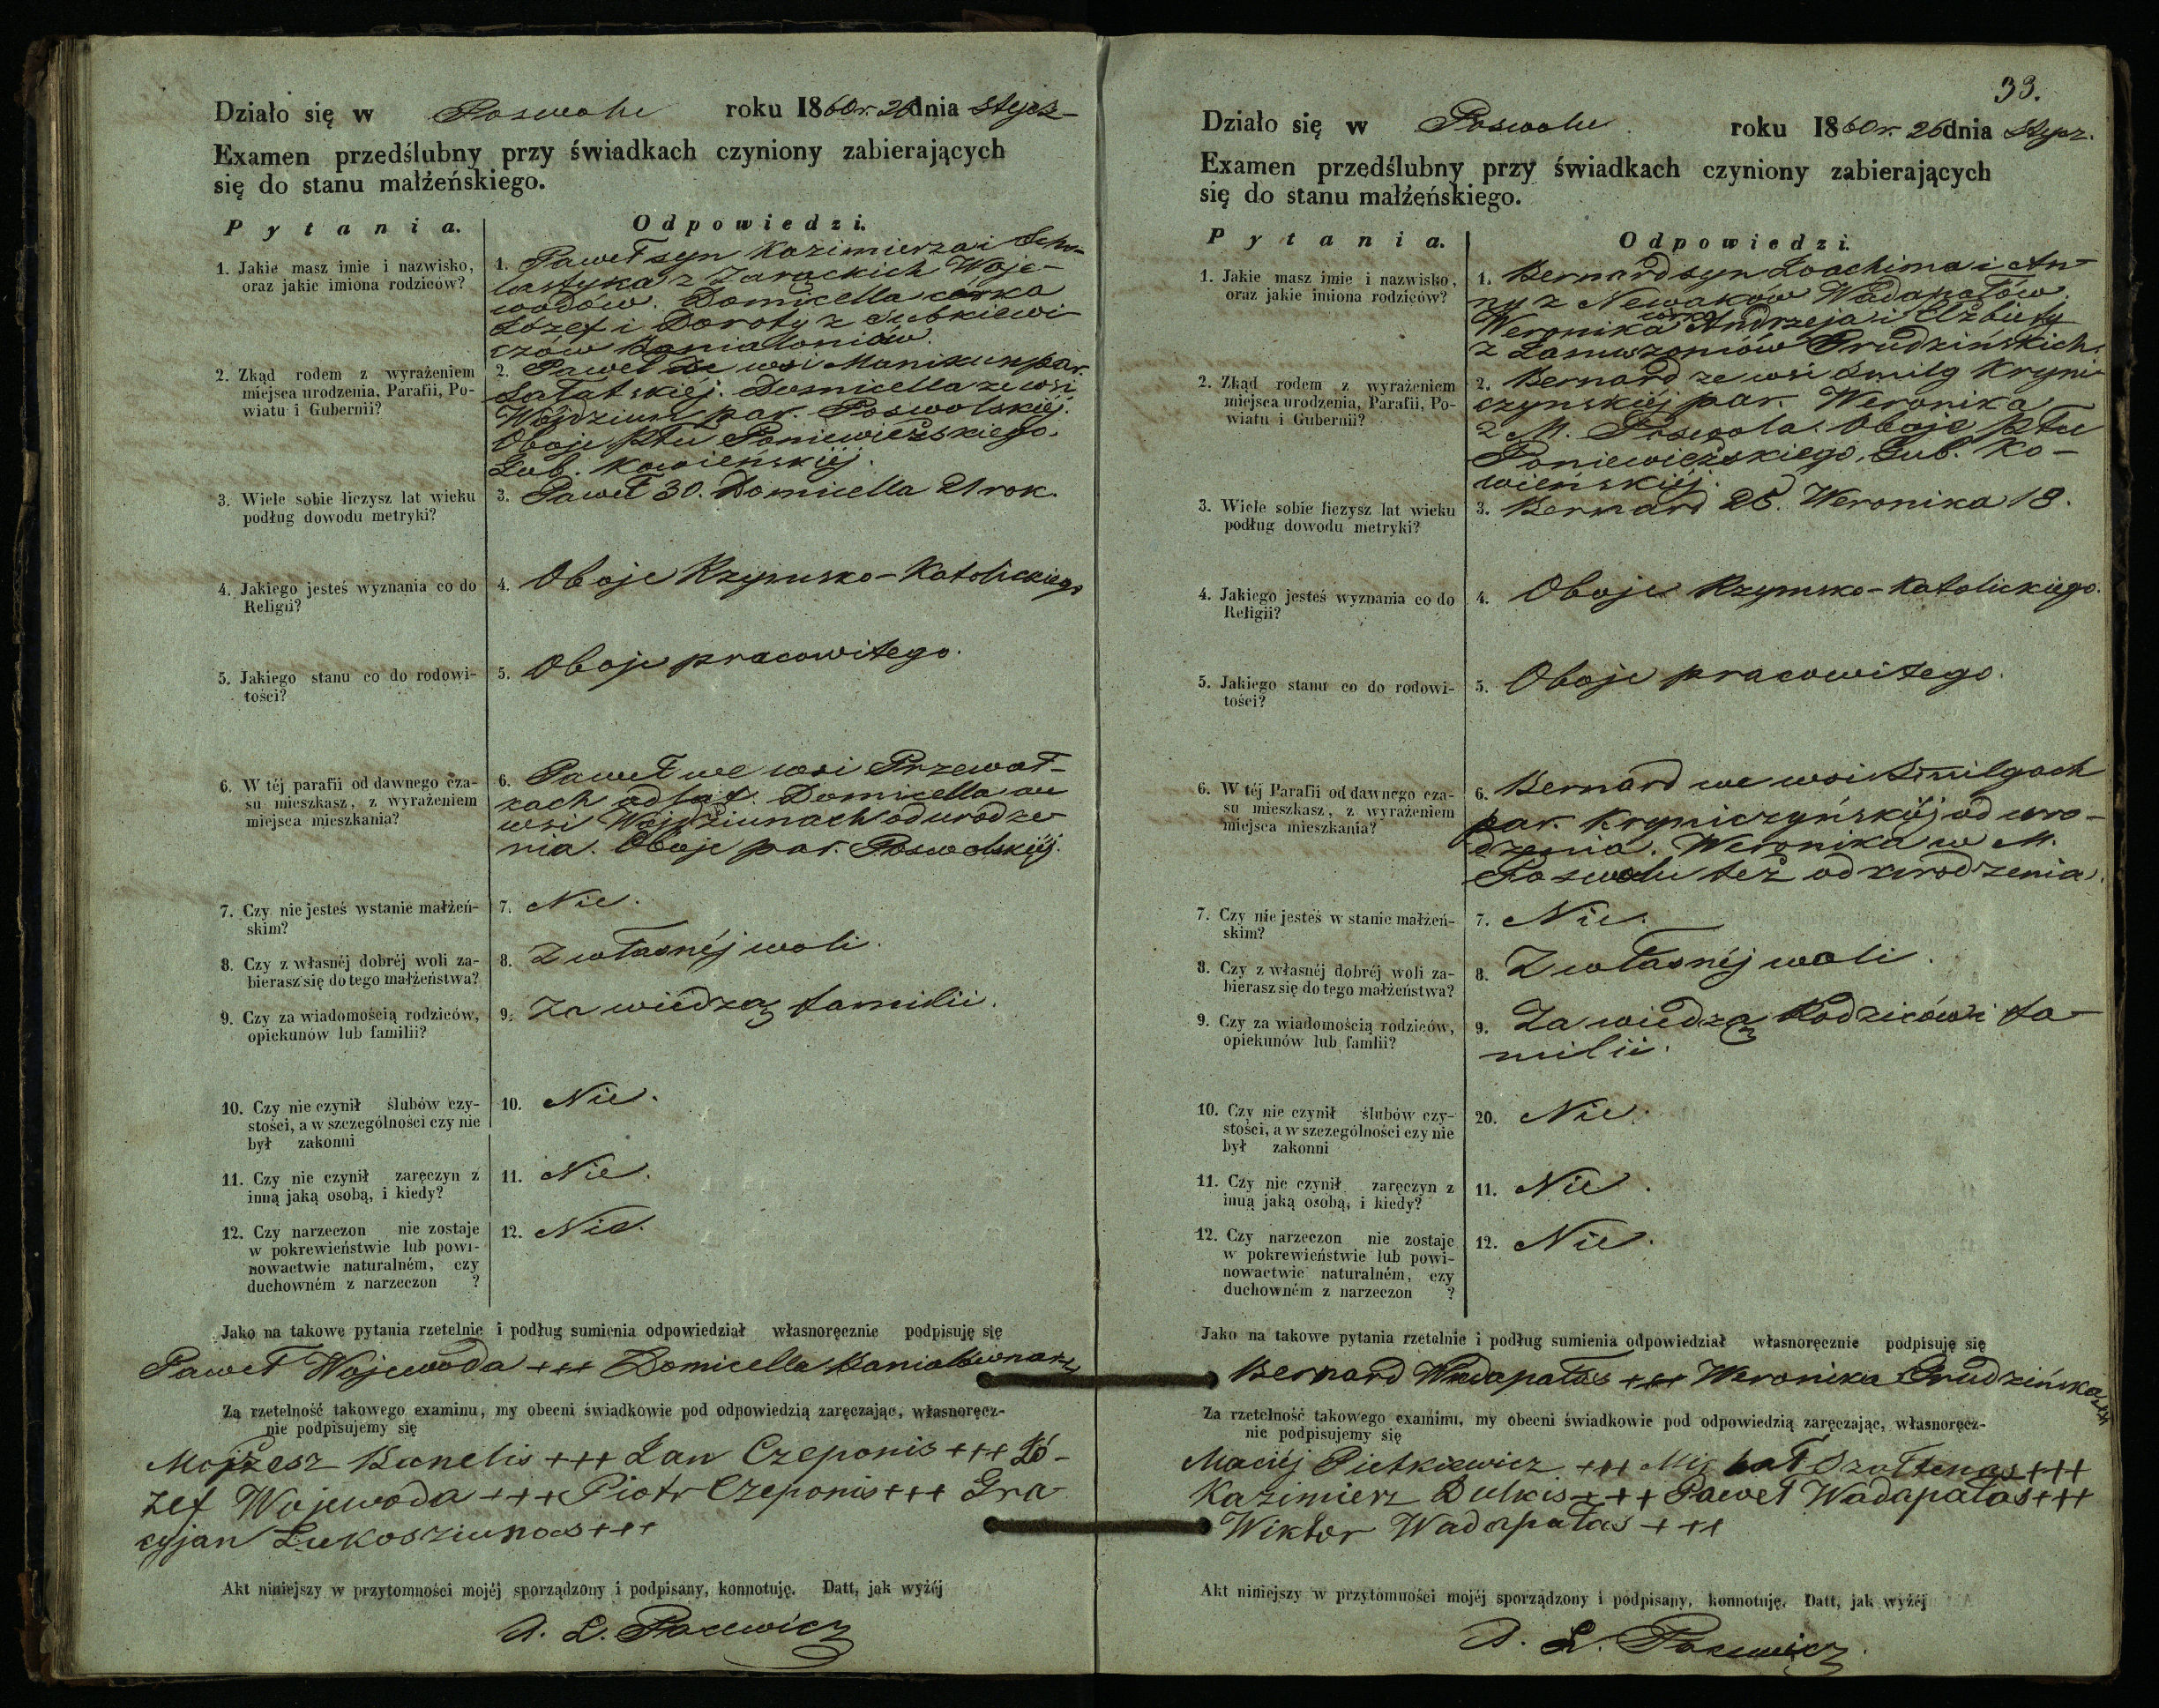 Działo się w Poswolu roku 1860 r. 26 dnia Stycz-
Examen przedślubny przy świadkach czyniony zabierających
się do stanu małżeńskiego.
Pytania. Odpowiedzi.
1. Jakie masz imie i nazwisko,
oraz jakie imiona rodziców?
1. Paweł syn Kazimierza i Scho-
lastyka z Zarackich Woje-
wodów. Domicella córka
Józef i Doroty z
czów
2. Zkąd rodem z wyrażeniem
miejsca urodzenia, Parafii, Po-
wiatu i Gubernii?
2. Paweł ze wsi Manikun par.
Sałatskiéj. Domicella ze wsi
Wojdziun par. Poswolskiéj.
Oboje Ptu Poniewieżskiego.
Gub. Kowieńskiéj.
3. Wiele sobie liczysz lat wieku
podług dowodu metryki?
3. Paweł 30. Domicella 21 rok.
4. Jakiego jesteś wyznania co do
Religii?
4. Oboje Rzymsko-Katolickiego
5. Jakiego stanu co do rodowi-
tości?
5. Oboje pracowitego.
6. W téj parafii od dawnego cza-
su mieszkasz, z wyrażeniem
miejsca mieszkania?
6. Paweł we wsi Przewał-
kach od lat. Domicella we
wsi Wojdziunach od urodze-
nia. Oboje par. Poswolskiéj.
7. Czy nie jesteś wstanie małżeń-
skim?
7. Nie.
8. Czy z własnéj dobréj woli za-
bierasz się do tego małżeństwa?
8. Z własnéj woli.
9. Czy za wiadomością rodziców,
opiekunów lub familii?
9. Za wiedzą familii.
10. Czy nie czynił ślubów czy-
stości, a w szczególności czy nie
był zakonni
10. Nie.
11. Czy nie czynił zaręczyn z
inną jaką osobą, i kiedy?
11. Nie.
12. Czy narzeczon nie zostaje
w pokrewieństwie lub powi-
nowactwie naturalném, czy
duchowném z narzeczon ?
12. Nie.
Jako na takowe pytania rzetelnie i podług sumienia odpowiedział własnoręcznie podpisuję się
Paweł Wojewoda +++ Domicella
Za rzetelność takowego examinu, my obecni świadkowie pod odpowiedzią zaręczając, własnoręcz-
nie podpisujemy się
Mojżesz Kunelis +++ Jan Czeponis +++ Jó-
zef Wojewoda +++ Piotr Czeponis +++ Gra-
cyjan Łukosziunas +++
Akt niniejszy w przytomności mojéj sporządzony i podpisany, konnotuję. Datt, jak wyżéj
A. L. Pacewicz
33.
Działo się w Poswolu. roku 1860 r. 26 dnia Stycz.
Examen przedślubny przy świadkach czyniony zabierających
się do stanu małżeńskiego.
Pytania. Odpowiedzi.
1. Jakie masz imie i nazwisko,
oraz jakie imiona rodziców?
1. Bernard syn Joachima i An-
ny z Newaków Wadapałów.
Weronika córka Andrzeja i Elżbiety
z Januszoniów Grudzińskich.
2. Zkąd rodem z wyrażeniem
miejsca urodzenia, Parafii, Po-
wiatu i Gubernii?
2. Bernard ze wsi Smilg Kryni-
czynskiéj par. Weronika
z M. Poswola. Oboje Ptu
Poniewieżskiego, Gub. Ko-
wieńskiéj.
3. Wiele sobie liczysz lat wieku
podług dowodu metryki?
3. Bernard 25. Weronika 18.
4. Jakiego jesteś wyznania co do
Religii?
4. Oboje Rzymsko-Katolickiego.
5. Jakiego stanu co do rodowi-
tości?
5. Oboje pracowitego.
6. W téj Parafii od dawnego cza-
su mieszkasz, z wyrażeniem
miejsca mieszkania?
6. Bernard we wsi Smilgach
par. Kryniczyńskiéj od uro-
dzenia. Weronika w M.
Poswolu też od urodzenia.
7. Czy nie jesteś w stanie małżeń-
skim?
7. Nie.
8. Czy z własnéj dobréj woli za-
bierasz się do tego małżeństwa?
8. Z własnéj woli.
9. Czy za wiadomością rodziców,
opiekunów lub famlii?
9. Za wiedzą Rodziców i fa-
milii.
10. Czy nie czynił ślubów czy-
stości, a w szczególności czy nie
był zakonni
20. Nie.
11. Czy nie czynił zaręczyn z
inną jaką osobą, i kiedy?
11. Nie.
12. Czy narzeczon nie zostaje
w pokrewieństwie lub powi-
nowactwie naturalném, czy
duchowném z narzeczon ?
12. Nie.
Jako na takowe pytania rzetelnie i podług sumienia odpowiedział własnoręcznie podpisuję się
Bernard Wadapałas +++ Weronika Grudzińska +++
Za rzetelność takowego examinu, my obecni świadkowie pod odpowiedzią zaręczając, własnoręcz-
nie podpisujemy się
Maciéj Pietkiewicz +++ Michał Szałtenas +++
Kazimierz Dulkis +++ Paweł Wadapałas +++
Wiktor Wadapałas +++
Akt niniejszy w przytomności mojéj sporządzony i podpisany, konnotuję. Datt, jak wyżéj
A. L. Pacewicz